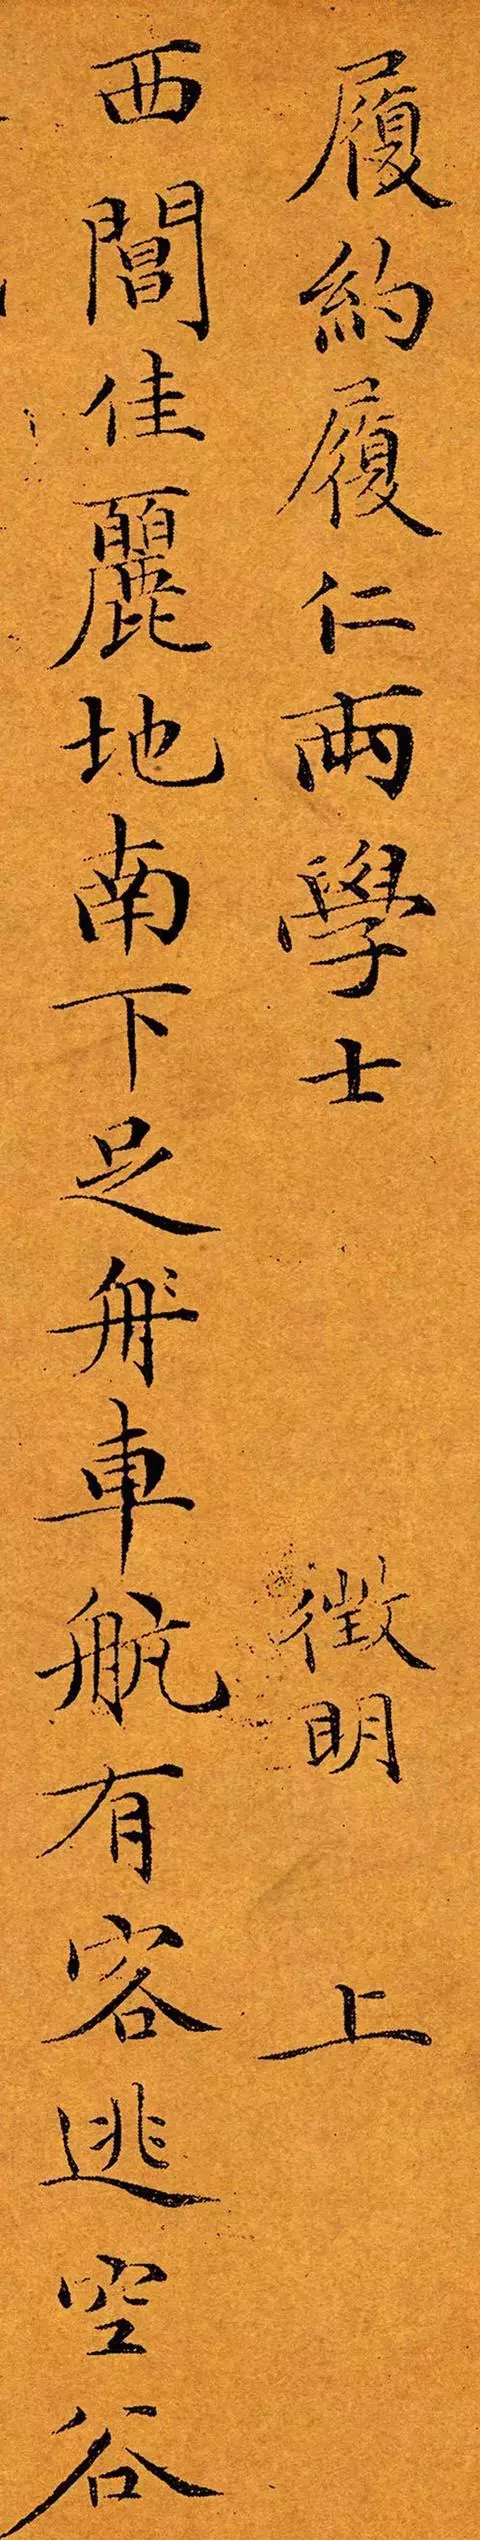 履約履仁兩學士 徵明 上
西閶佳麗地南下足舟車航有客逃空谷